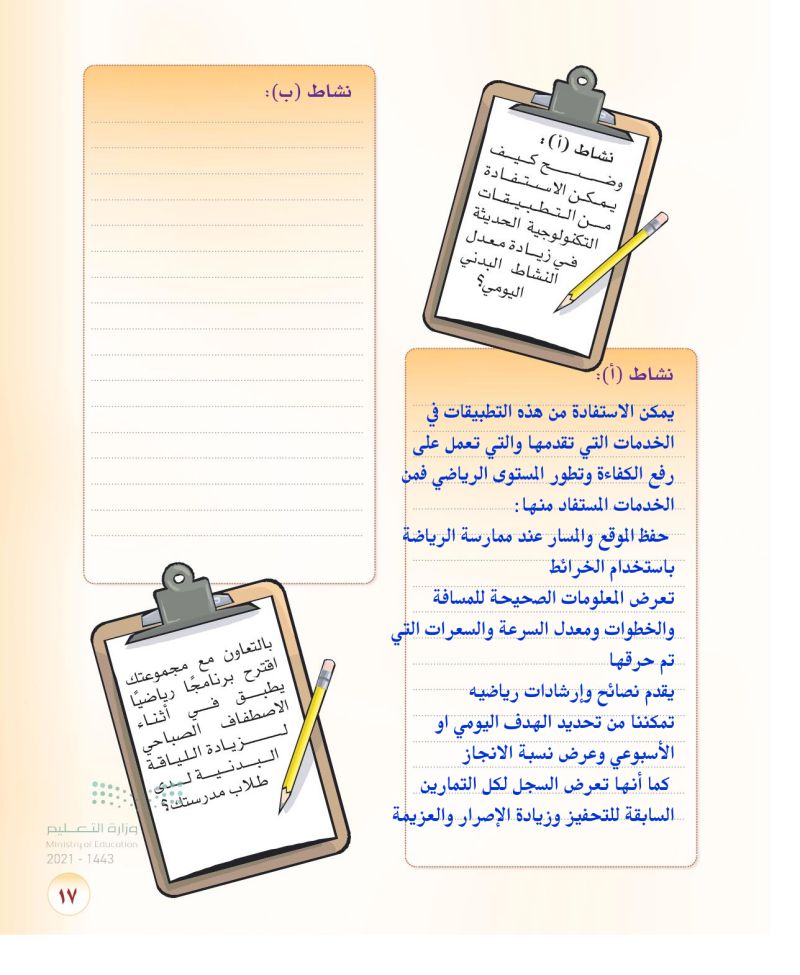 نشاط (أ) :
وضـــح كـيـف
يـمـكـن الاسـتـفـادة
مــن الـتـطـبـيـقـات
التكنولوجية الحديثة
فـي زيــادة معدل
النشاط البدني
اليومي؟
نشاط (أ):
يمكن الاستفادة من هذه التطبيقات في
الخدمات التي تقدمها والتي تعمل على
رفع الكفاءة وتطور المستوى الرياضي فمن
الخدمات المستفاد منها :
حفظ الموقع والمسار عند ممارسة الرياضة
باستخدام الخرائط
تعرض المعلومات الصحيحة للمسافة
والخطوات ومعدل السرعة والسعرات التي
تم حرقها
يقدم نصائح وإرشادات رياضيه
تمكننا من تحديد الهدف اليومي او
الأسبوعي وعرض نسبة الانجاز
كما أنها تعرض السجل لكل التمارين
السابقة للتحفيز وزيادة الإصرار والعزيمة
نشاط (ب):
بالتعاون مع مجموعتك
اقترح برنامجًا رياضيًا
يطبــق فــي أثناء
الاصطفاف الصباحي
لـــزيـادة اللياقـة
الـبـدنـيـة لـدى
طلاب مدرستك؟
وزارة التعـــليم
Ministry of Education
2021 - 1443
١٧